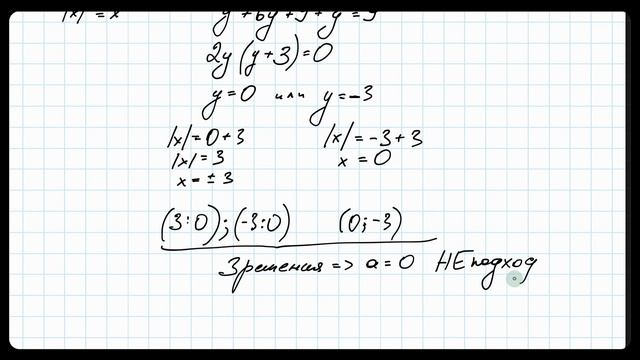 |x|² = x²
y² + 6y + 9 + y² = 9
2y (y + 3) = 0
y = 0 или y = -3
|x| = 0 + 3 |x| = -3 + 3
|x| = 3 x = 0
x = ± 3
(3:0); (-3:0) (0; -3)
3 решения => a = 0 НЕ подход